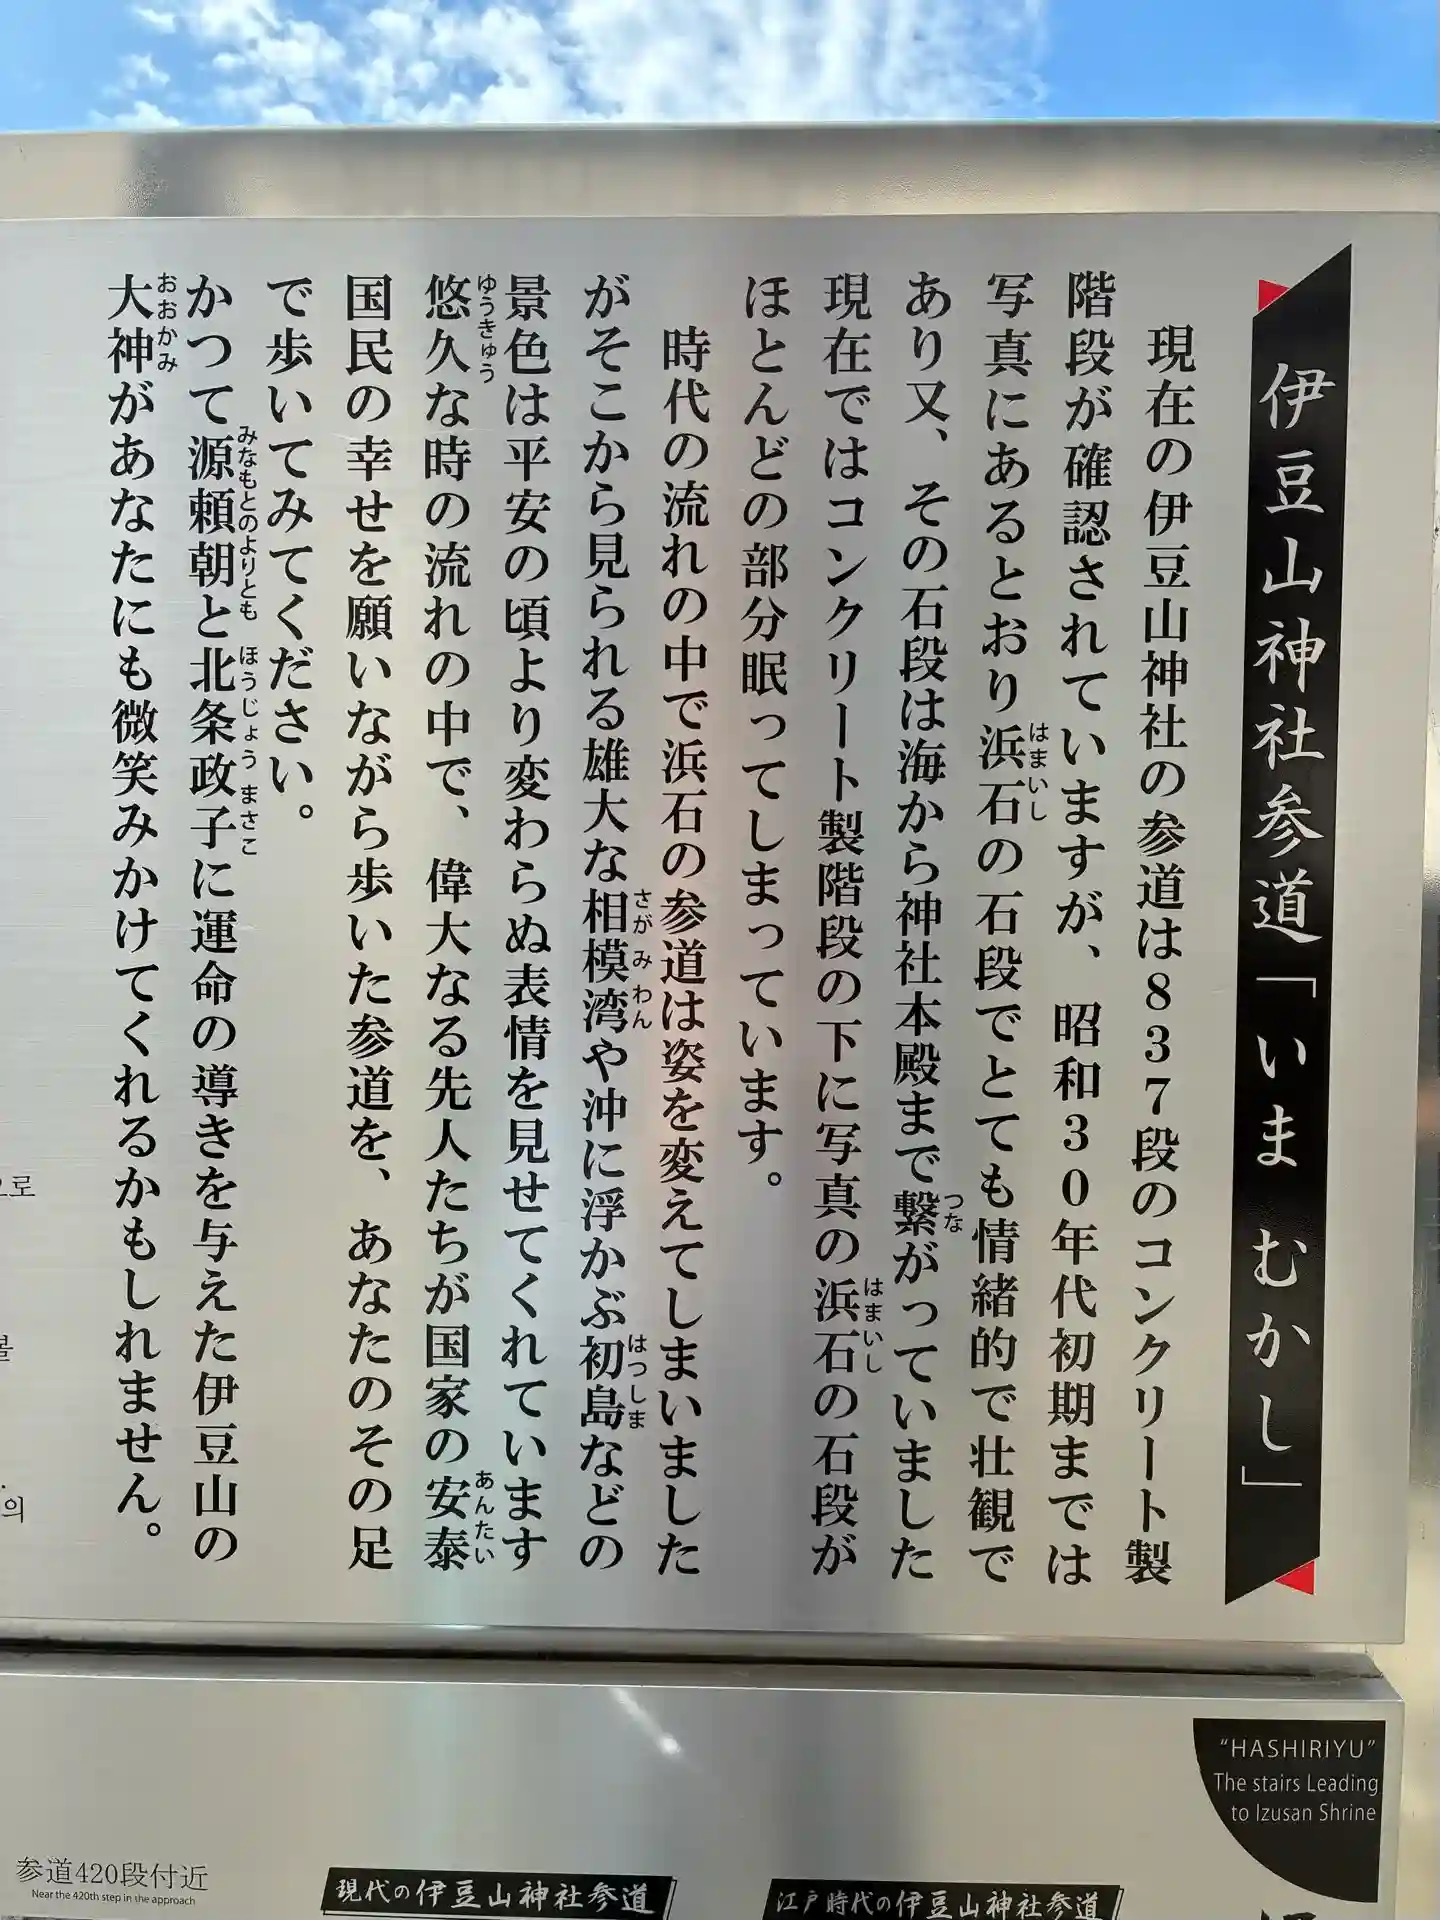 伊豆山神社参道「いま むかし」
現在の伊豆山神社の参道は837段のコンクリート製
階段が確認されていますが、昭和30年代初期までは
写真にあるとおり浜石の石段でとても情緒的で壮観で
はまいし
あり又、その石段は海から神社本殿まで繋がっていました
つな
現在ではコンクリート製階段の下に写真の浜石の石段が
はまいし
ほとんどの部分眠ってしまっています。
時代の流れの中で浜石の参道は姿を変えてしまいました
がそこから見られる雄大な相模湾や沖に浮かぶ初島などの
さがみわん はつしま
景色は平安の頃より変わらぬ表情を見せてくれています
悠久な時の流れの中で、偉大なる先人たちが国家の安泰
ゆうきゅう あんたい
国民の幸せを願いながら歩いた参道を、あなたのその足
で歩いてみてください。
かつて源頼朝と北条政子に運命の導きを与えた伊豆山の
みなもとのよりとも ほうじょう まさこ
大神があなたにも微笑みかけてくれるかもしれません。
おおかみ
으로
의
"HASHIRIYU"
The stairs Leading
to Izusan Shrine
参道420段付近
Near the 420th step in the approach
現代の伊豆山神社参道
江戸時代の伊豆山神社参道